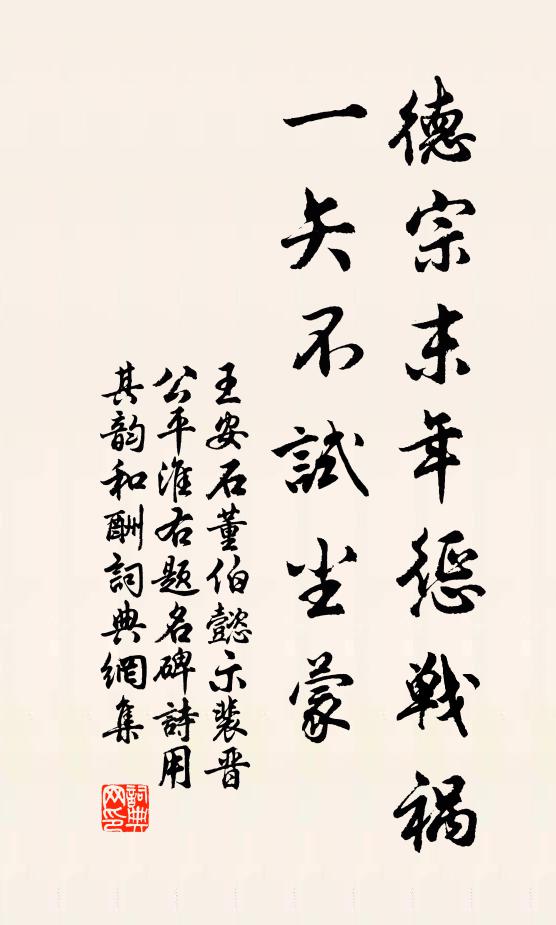 德宗末年惩戦祸
一矢不試尘蒙
王安石董伯懿示裴晋
公平淮右题名碑詩用
其韵和酬詞典網集
詞典网印